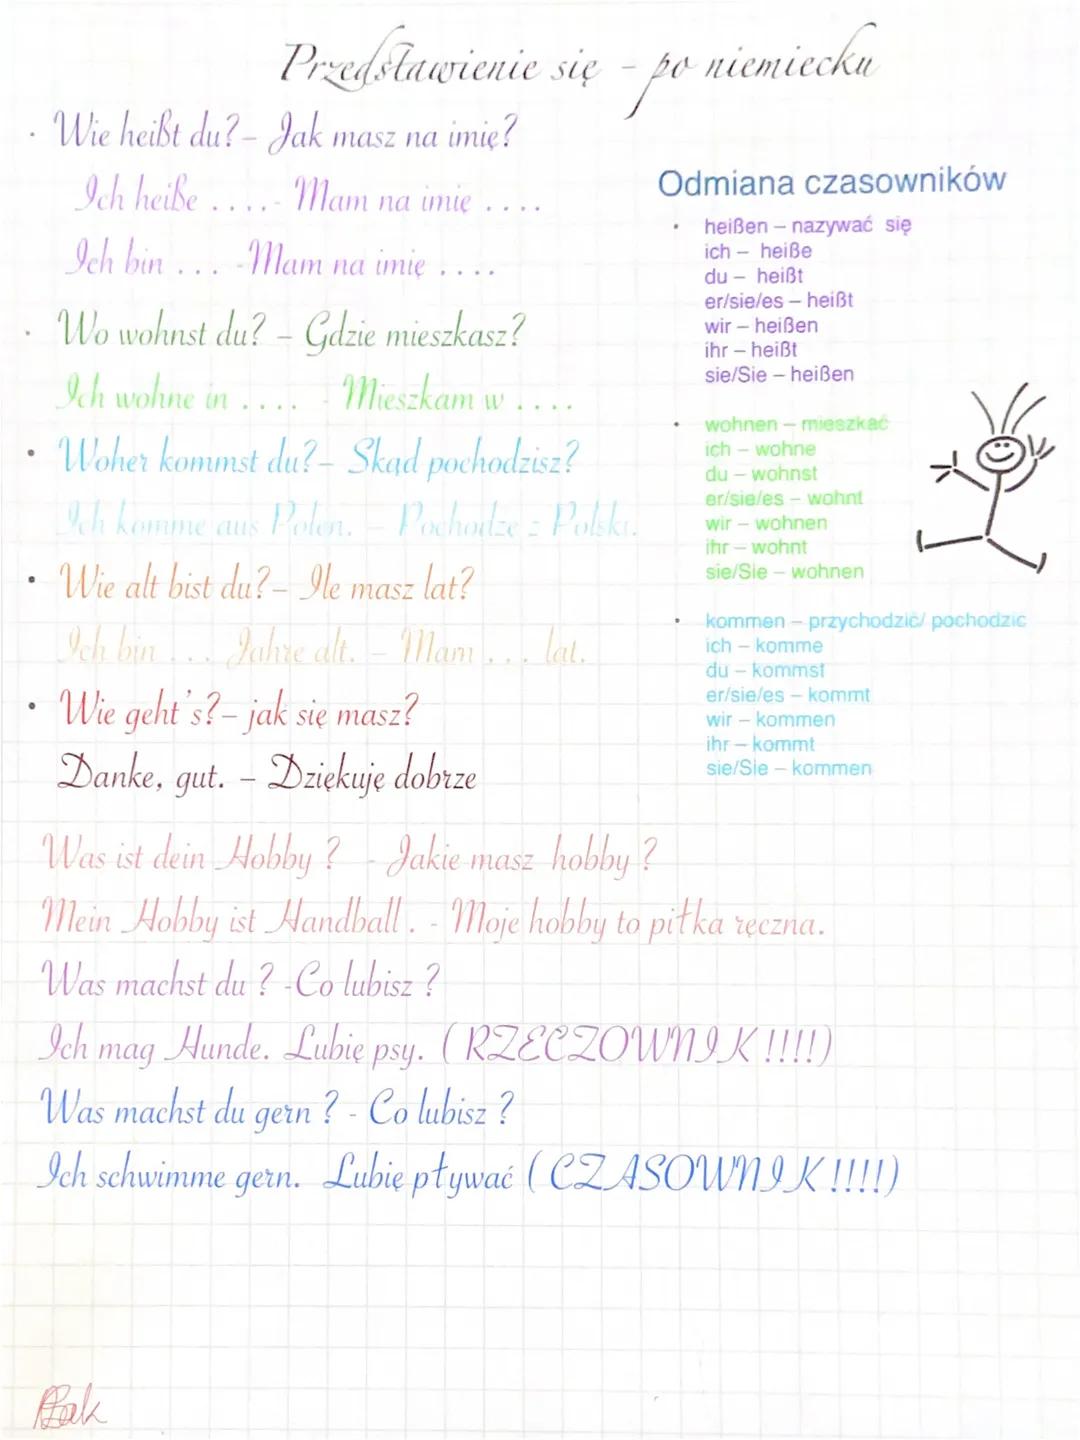 Przedstawienie się - po niemiecku
· Wie heißt du? – Jak masz na imię?
Ich heiße .... - Mam na imię ....
Ich bin ... - Mam na imię ....
· Wo wohnst du? – Gdzie mieszkasz?
Ich wohne in .... - Mieszkam w ....
• Woher kommst du? – Skąd pochodzisz?
Ich komme aus Polen. – Pochodzę z Polski.
• Wie alt bist du? – Ile masz lat?
Ich bin ... Jahre alt. – Mam ... lat.
• Wie geht's? – jak się masz?
Danke, gut. – Dziękuję dobrze
Odmiana czasowników
• heißen – nazywać się
ich – heiße
du – heißt
er/sie/es – heißt
wir – heißen
ihr – heißt
sie/Sie – heißen
• wohnen – mieszkać
ich – wohne
du – wohnst
er/sie/es – wohnt
wir – wohnen
ihr – wohnt
sie/Sie – wohnen
• kommen – przychodzić/ pochodzic
ich – komme
du – kommst
er/sie/es – kommt
wir – kommen
ihr – kommt
sie/Sie – kommen
Was ist dein Hobby ? - Jakie masz hobby ?
Mein Hobby ist Handball. - Moje hobby to piłka ręczna.
Was machst du ? - Co lubisz ?
Ich mag Hunde. Lubię psy. (RZECZOWNIK !!!!)
Was machst du gern ? - Co lubisz ?
Ich schwimme gern. Lubię pływać (CZASOWNIK !!!!)